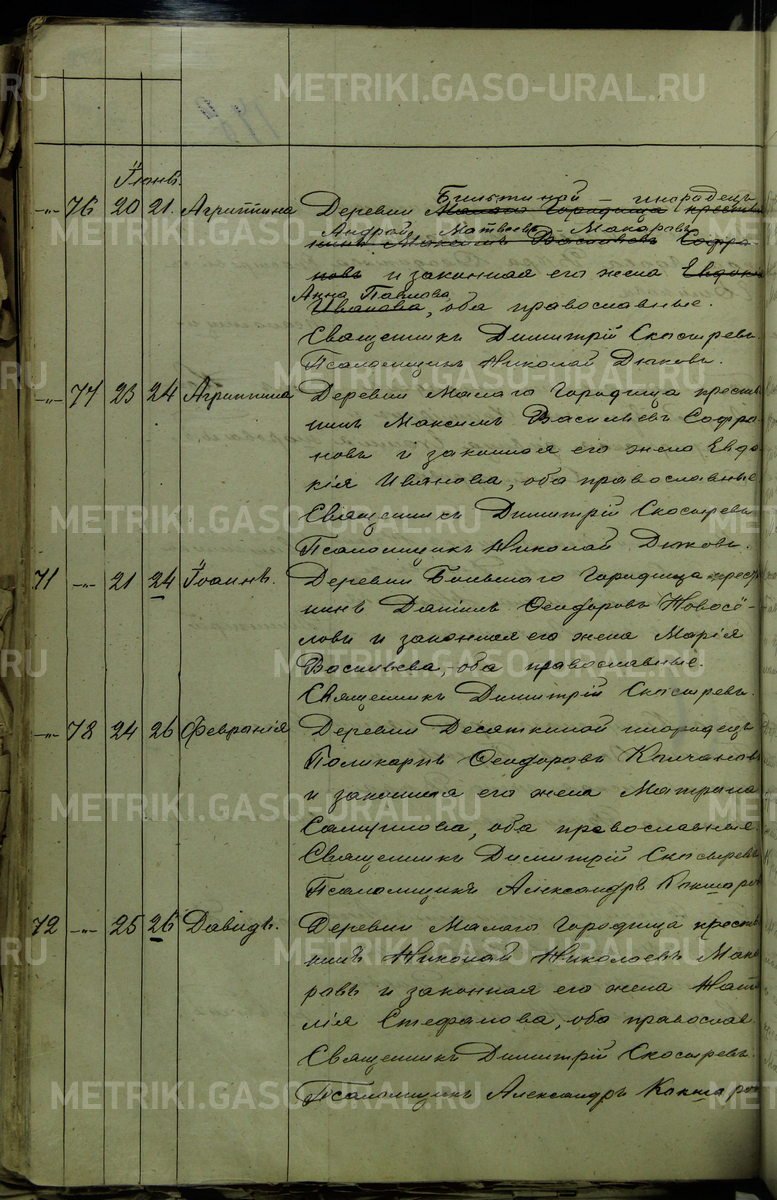 METRIKI.GASO-URAL.RU
Іюнь.
Бильтиной – инородецъ
-"- 76 20 21. Агриппина Деревни Малаго Городища крестья
Андрей Матвѣевъ Макаровъ
нинъ Максимъ Васильевъ Софро-
новъ и законная его жена Евдокія
Анна Павлова
Иванова, оба православные.
Священникъ Димитрій Скосыревъ.
Псаломщикъ Николай Дюковъ.
-"- 77 23 24 Агриппина Деревни Малаго Городища крестья
нинъ Максимъ Васильевъ Софро
новъ и законная его жена Евдо
кія Иванова, оба православные
Священникъ Димитрій Скосыревъ
Псаломщикъ Николай Дюковъ.
71 -"- 21 24 Іоаннъ. Деревни Большаго Городища крестья
нинъ Даніилъ Ѳеодоровъ Новосё-
ловъ и законная его жена Марія
Васильева, оба православные.
Священникъ Димитрій Скосыревъ.
-"- 78 24 26 Февранія Деревни Десяткиной инородецъ
Поликарпъ Ѳеодоровъ Колчановъ
и законная его жена Матрона
Самуилова, оба православные.
Священникъ Димитрій Скосыревъ
Псаломщикъ Александръ Кокшаров
72 -"- 25 26 Давидъ. Деревни Малаго Городища крестья
нинъ Николай Николаевъ Мака
ровъ и законная его жена Ната
лія Стефанова, оба православ.
Священникъ Димитрій Скосыревъ.
Псаломщикъ Александръ Кокшаров